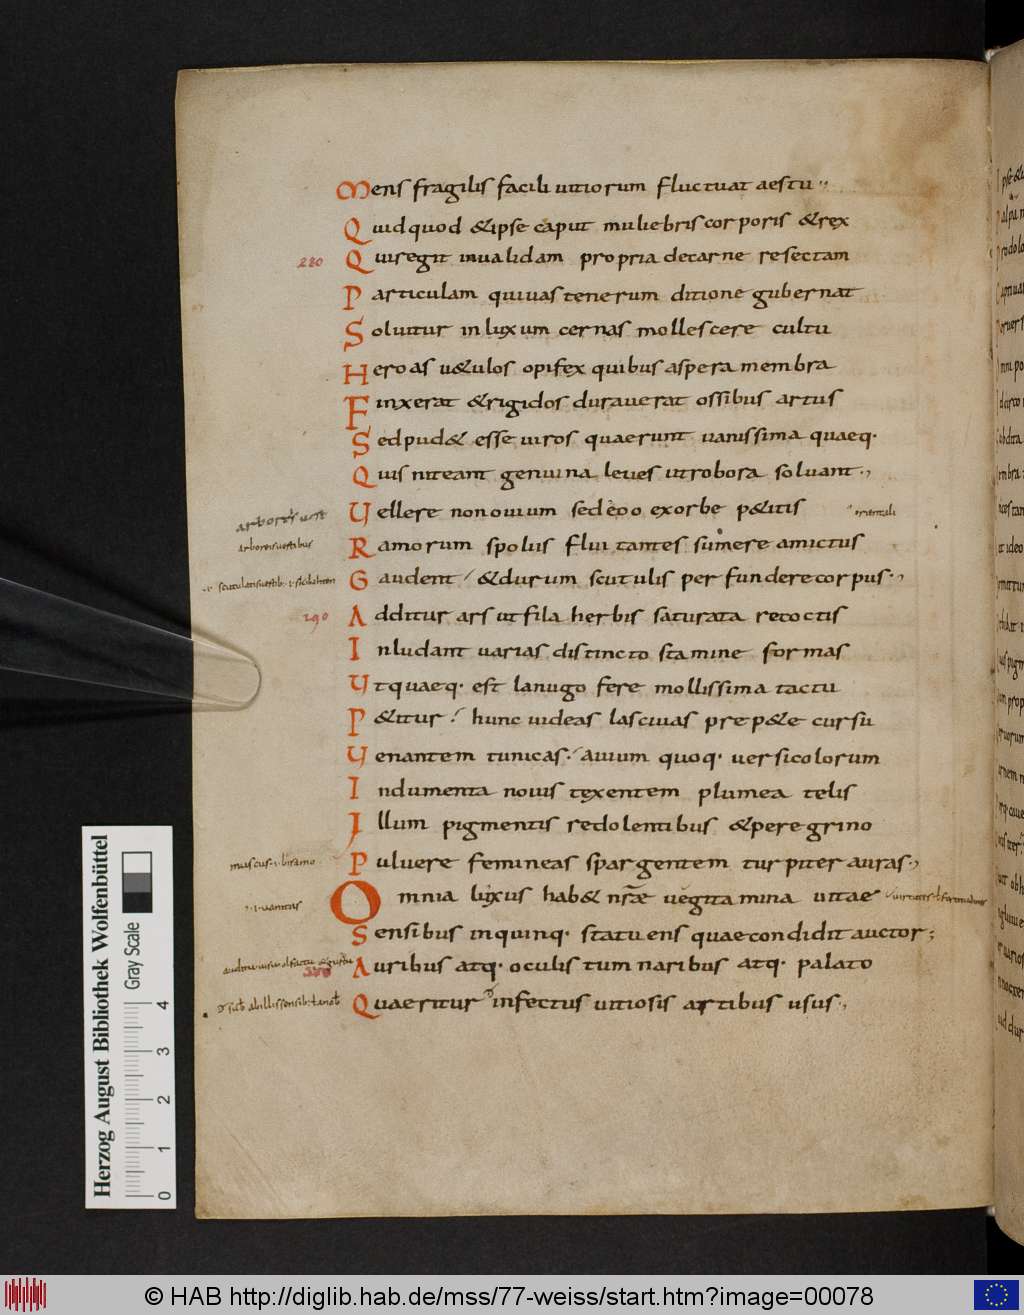 Mens fragilis facili uitiorum fluctuat aestu
Quidquod &ipse caput muliebris corporis &rex
280 Qui regit inualidam propria de carne resectam
Particulam qui uas tenerum ditione gubernat
Soluitur in luxum cernas mollescere cultu
Heroas u&ulos opifex quibus aspera membra
Finxerat &rigidos durauerat ossibus artus
Sed pud& esse uiros quaerunt uanissima quaeq·
Quis niteant genuina leues ut robora soluant
Uellere non ouium sed eoo ex orbe p&itis
orientali
Ramorum spoliis fluitantes sumere amictus
arboreis uestibus
Gaudent &durum scutulis perfundere corpus
290 Additur ars ut fila herbis saturata recoctis
Inludant uarias distincto stamine formas
Utquaeq· est lanugo fere mollissima tactu
P&itur hunc uideas lasciuas prep&e cursu
Uenantem tunicas auium quoq· uersicolorum
Indumenta nouis texentem plumea telis
Illum pigmentis redolentibus &peregrino
Puluere femineas spargentem turpiter auras
Omnia luxus hab& nrae uegitamina uitae
uanitas
Sensibus in quinq· statuens quae condidit auctor;
Auribus atq· oculis tum naribus atq· palato
Quaeritur infectus uitiosis artibus usus
Herzog August Bibliothek Wolfenbüttel
Gray Scale
0 1 2 3 4
© HAB http://diglib.hab.de/mss/77-weiss/start.htm?image=00078